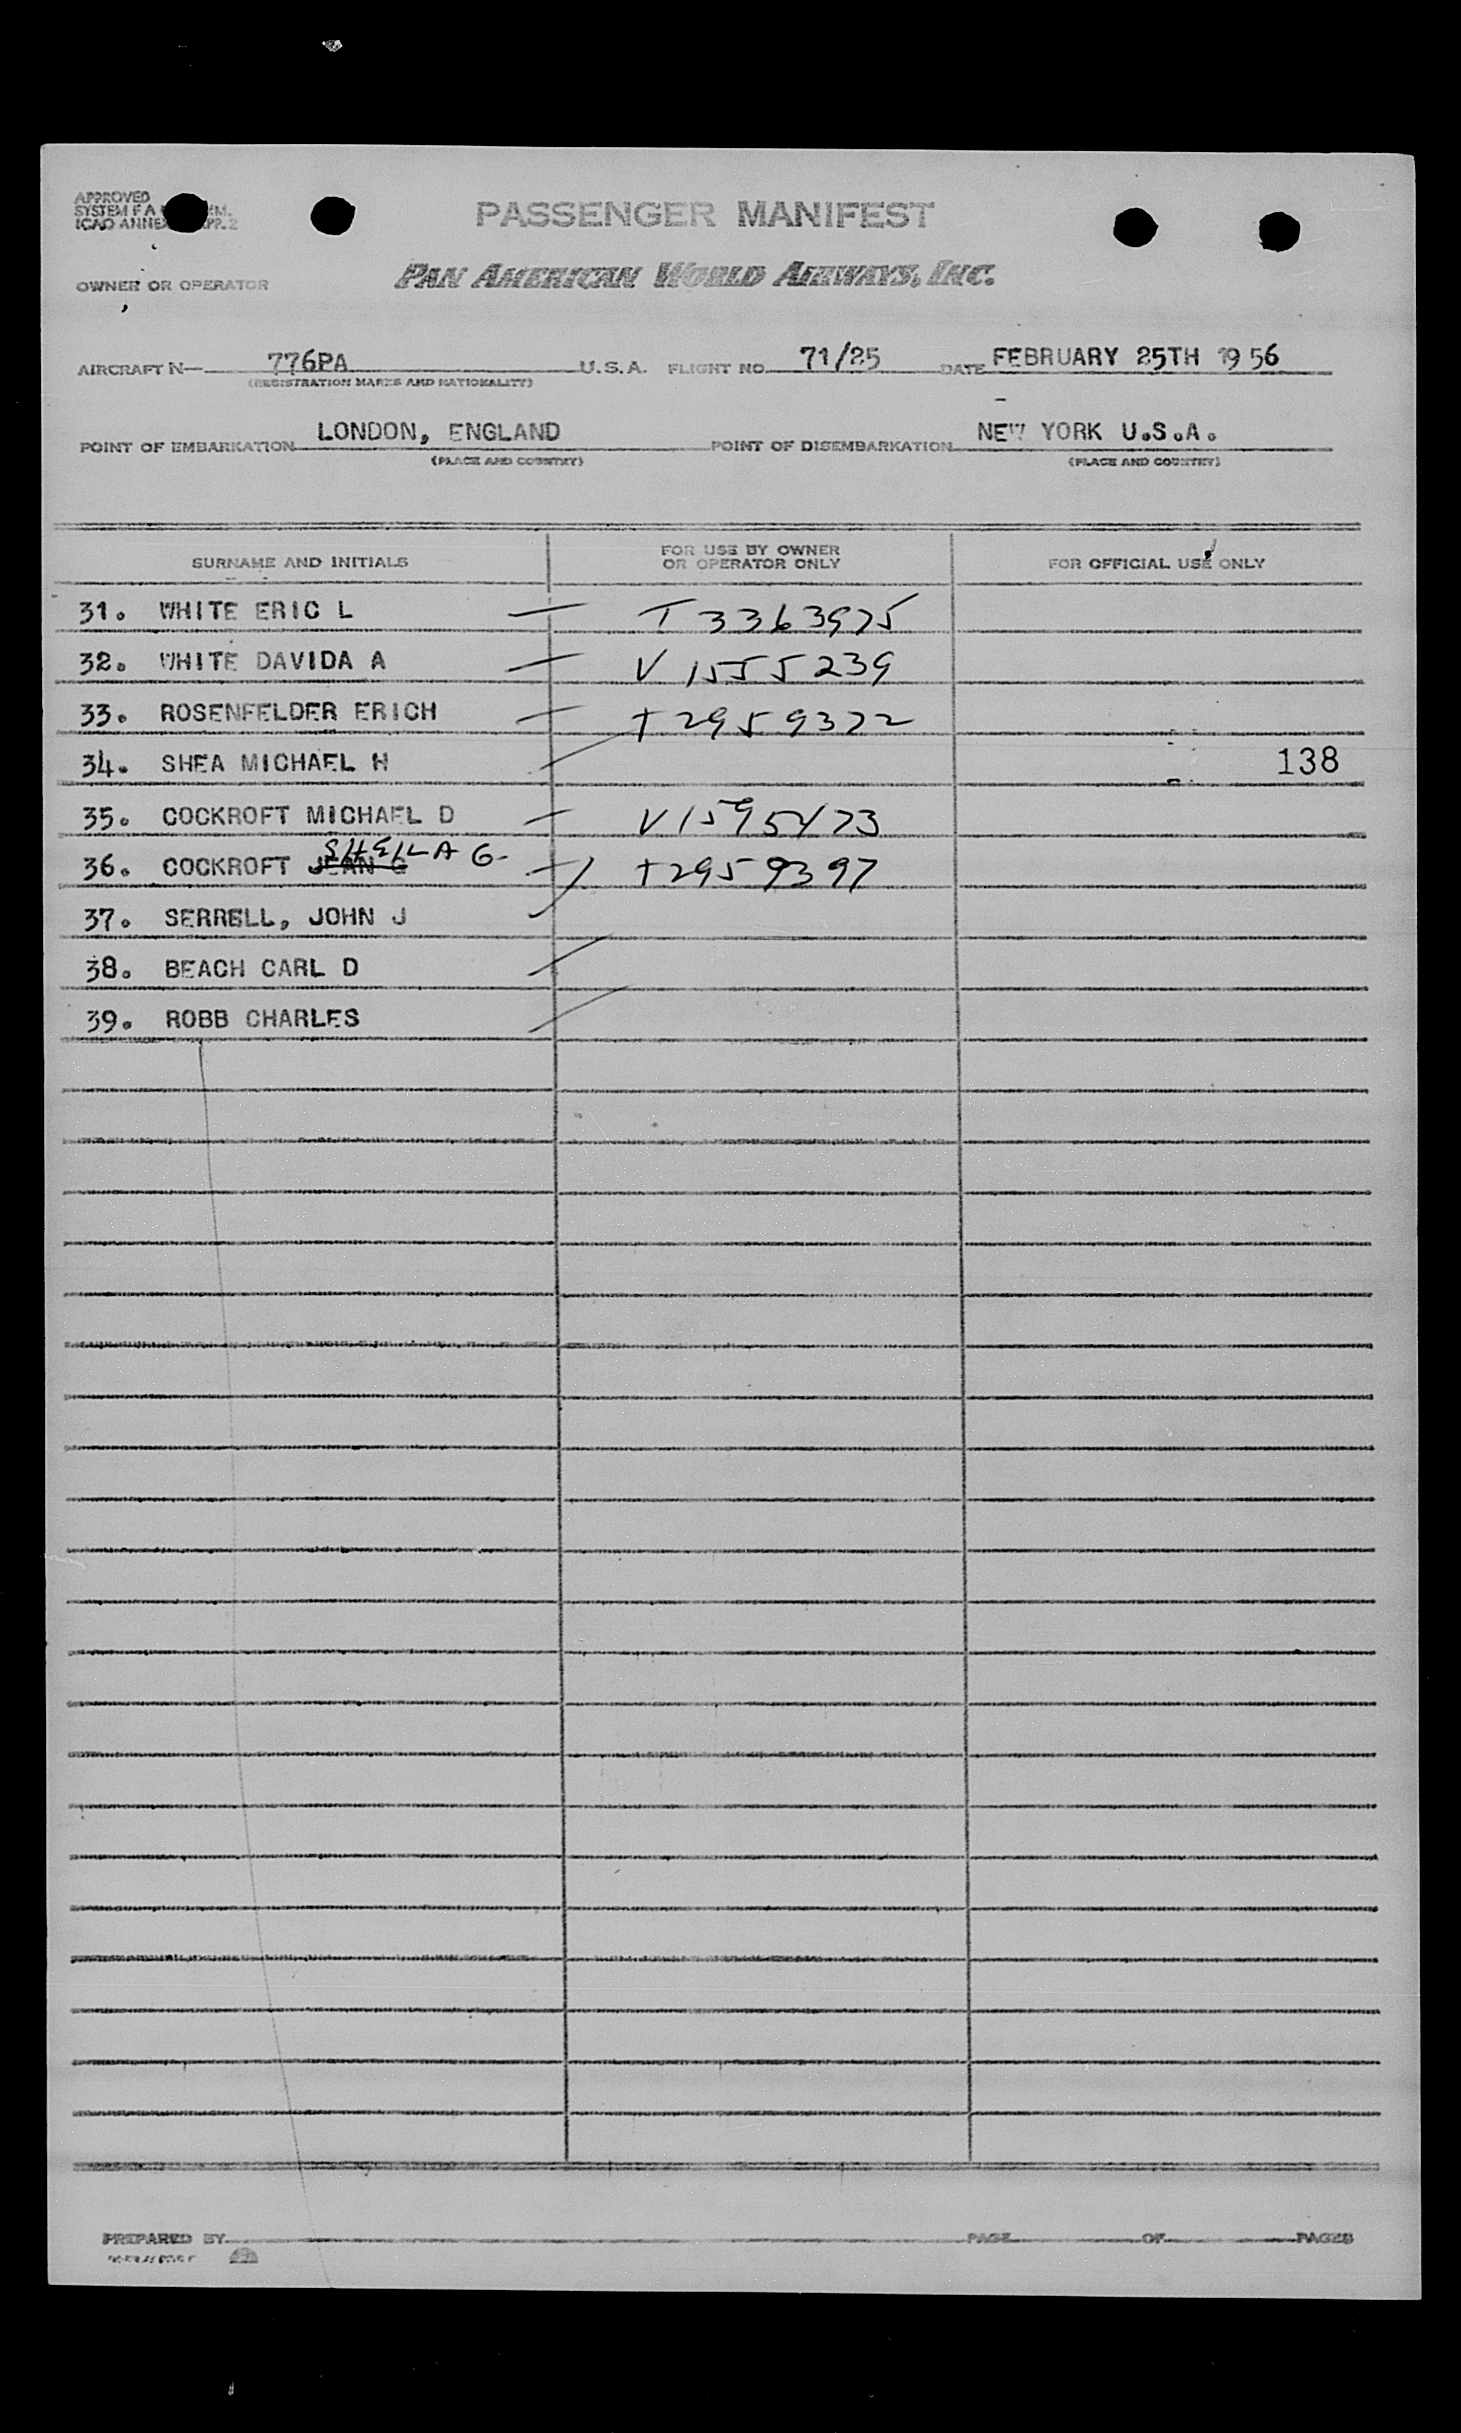 APPROVED
SYSTEM F A
ICAO ANNEX APP. 2
PASSENGER MANIFEST
OWNER OR OPERATOR
PAN AMERICAN WORLD AIRWAYS, INC.
AIRCRAFT N— 776PA U.S.A. FLIGHT NO. 71/25 DATE FEBRUARY 25TH 1956
(REGISTRATION MARKS AND NATIONALITY)
POINT OF EMBARKATION LONDON, ENGLAND POINT OF DISEMBARKATION NEW YORK U.S.A.
(PLACE AND COUNTRY) (PLACE AND COUNTRY)
SURNAME AND INITIALS FOR USE BY OWNER OR OPERATOR ONLY FOR OFFICIAL USE ONLY
31. WHITE ERIC L — T 3363975
32. WHITE DAVIDA A — V 1555239
33. ROSENFELDER ERICH — T 2959372
34. SHEA MICHAEL H 138
35. COCKROFT MICHAEL D — V 1595473
SHEILA G.
36. COCKROFT JEAN G — T 2959397
37. SERRELL, JOHN J
38. BEACH CARL D
39. ROBB CHARLES
PREPARED BY PAGE OF PAGES